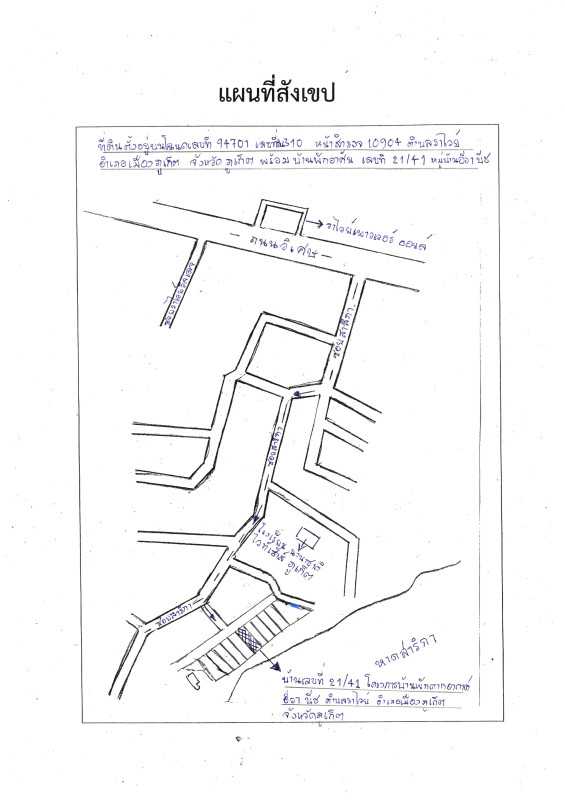 แผนที่สังเขป
ที่ดินตั้งอยู่บนโฉนดเลขที่ 94701 เลขที่ดิน310 หน้าสำรวจ 10904 ตำบลราไวย์
อำเภอเมืองภูเก็ต จังหวัด ภูเก็ต พร้อม บ้านพักอาศัย เลขที่ 21/41 หมู่บ้านอีวา บีช
ราไวย์เพาเวอร์ ออยล์
ถนนวิเศษ
ซอยสาลิกา
ซอยสาลิกา
โรงเรียน นานาชาติ
ภูเก็ต
ซอยสาลิกา
หาดสาริกา
บ้านเลขที่ 21/41 โครงการบ้านพักตากอากาศ
อีวา บีช ตำบลราไวย์ อำเภอเมืองภูเก็ต
จังหวัดภูเก็ต